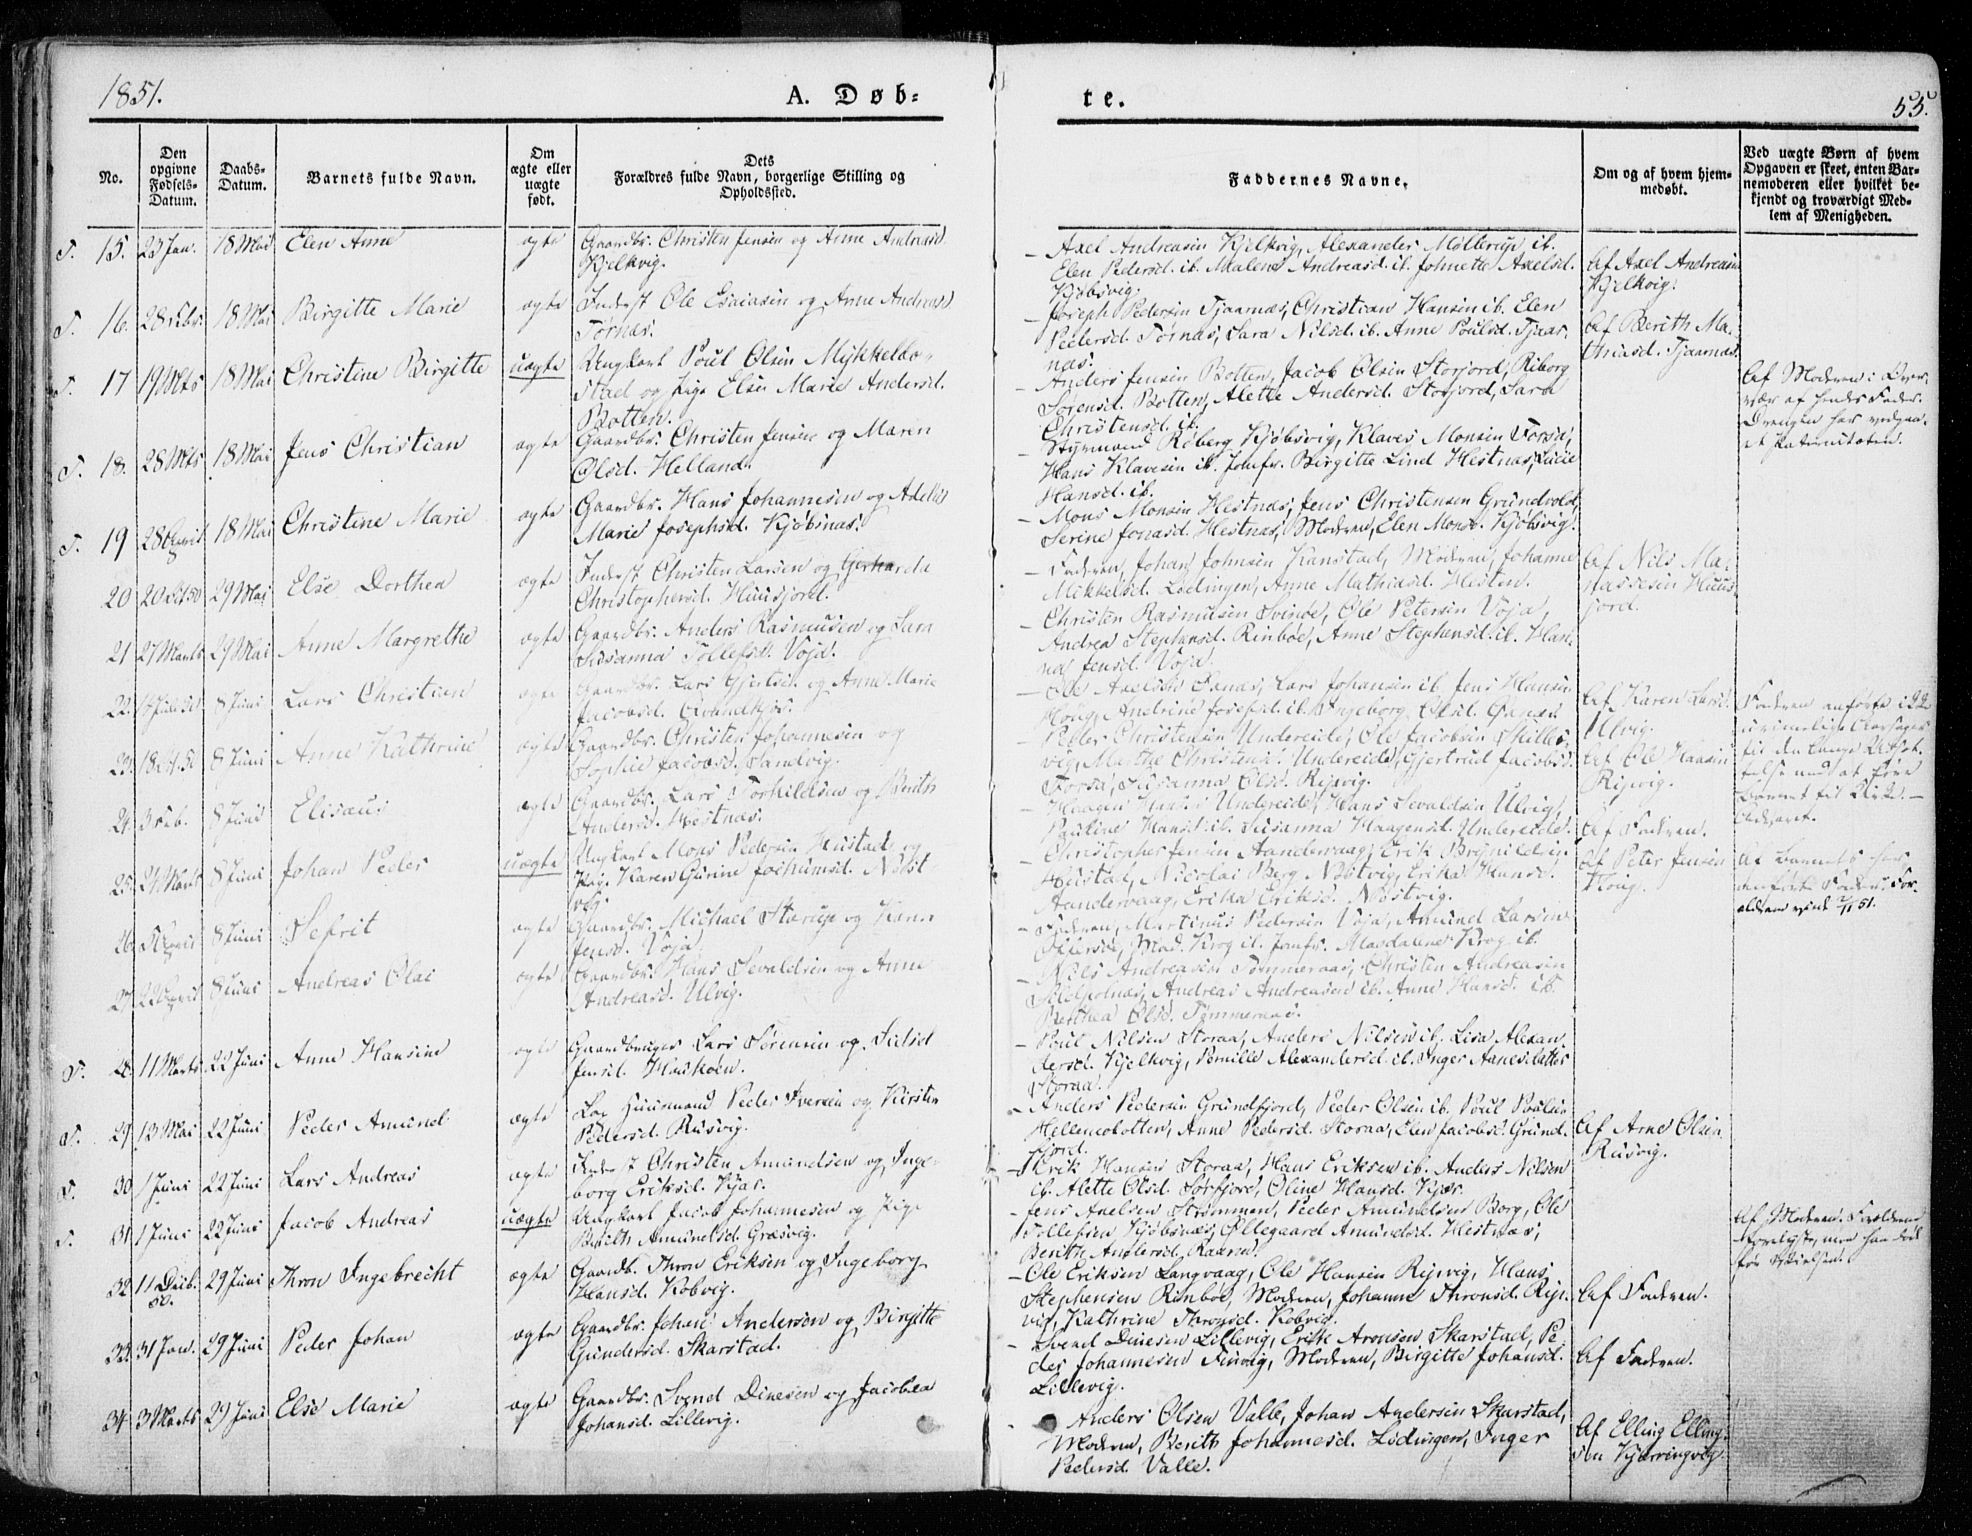 1851.
A. Døb-
te.
55.
No.
Den
opgivne
Fødsels-
Datum.
Daabs-
Datum.
Barnets fulde Navn.
Om
ægte eller
uægte
født.
Dets
Forældres fulde Navn, borgerlige Stilling og
Opholdssted.
Faddernes Navne.
Om og af hvem hjem-
medøbt.
Ved uægte Børn af hvem
Opgaven er skeet, enten Bar-
nemoderen eller hvilket be-
kjendt og troværdigt Med-
lem af Menigheden.
15. 23 Jan. 18 Mai Elen Anne ægte Gaardbr. Christen Jensen og Anne Andreasd.
Kjelkvig.
Axel Andreasen Kjelkvig, Alexander Møllerup ib.
Elen Pedersd. ib. Malene Andreasd. ib. Johnette Axelsd.
Kjøbsvig.
Af Axel Andreasen
Kjelkvig.
16. 28 Febr. 18 Mai Birgitte Marie ægte Inderst Ole Esaiasen og Anne Andreasd.
Tørnæs.
Joseph Pedersen Tjaarnæs, Christian Hansen ib. Elen
Pedersd. Tørnæs, Sara Nilsd. ib. Anne Poulsd. Tjaar-
næs.
Af Berith Ma-
thiasd. Tjaarnæs.
17 19 Mts 18 Mai Christine Birgitte uægte Ungkarl Poul Olsen Mykkelbo-
stad og Pige Elsen Marie Andersd.
Botten.
Anders Jensen Botten, Jacob Olsen Storjord, Riborg
Sørensd. Botten, Alette Andersd. Storjord, Sara
Christensd. ib.
Af Moderen i Over-
vær af hendes Fader.
Drengen har vedgaa-
et Paterniteten.
18. 28 Mts 18 Mai Jens Christian ægte Gaardbr. Christen Jensen og Maren
Olsd. Helland.
Styrmand Røberg Kjøbsvig, Klaves Monsen Forsa,
Hans Klavesen ib. Jomfr. Birgitte Lind Hestnæs, Lucie
Hansd. ib.
19 28 April 18 Mai Christine Marie ægte Gaardbr. Hans Johannesen og
Marie Josephsd. Kjøbsnæs.
Mons Monsen Hestnæs, Jens Christensen Grundvold,
Serine Jonasd. Hestnæs, Moderen, Elen Monsd. Kjøbsvig.
20 29 Mai Else Dorthea ægte Inderst Christen Larsen og Gerharda
Christophersd. Huusjord.
Faderen, Johan Johnsen Kanstad, Moderen, Johanne
Mikkelsd. Lødingen, Anne Mathiasd. Hesten.
Af Nils Ma-
nassesen Huus-
jord.
21 27 Marts 29 Mai Anne Margrethe ægte Gaardbr. Anders Rasmusen og Sara
Susanna Tollefsd. Voja.
Christen Rasmusen Svinøe, Ole Petersen Voja,
Andrea Stephensd. Rinbøe, Anne Stephensd. ib. Han-
na Jensd. Voja.
22. 8 Juni Lars Christian ægte Gaardbr. Lars Gjertsen og Anne Marie
Jacobsd.
Ole Axelsen Fanæs, Lars Johansen ib. Jens Hansen
Houg, Andrine Josephd. ib. Ingeborg Olsd. Fanæs.
Af Karen Larsd.
Ulvig.
Faderen anførte i 22
urimelige Aarsager
23. 8 Juni Anne Kathrine ægte Gaardbr. Christen Johannesen og
Sophie Jacobsd. Sandvig.
Peder Christensen Undereide, Ole Jacobsen Skille-
vig, Marthe Christensd. Undereide, Gjertrud Jacobsd.
Forsa, Susanna Olsd. Rijsvig.
Af Ole Hansen
Rijsvig.
24. 3 Feb. 8 Juni Elisæus ægte Gaardbr. Lars Torkildsen og Berith
Andersd. Hestnæs.
Haagen Hansen Undereide, Hans Sevaldsen Ulvig,
Pauline Hansd. ib. Susanna Haagensd. Undereide.
Af Faderen.
25. 24 Marts 8 Juni Johan Peder uægte Ungkarl Mons Pedersen Hustad og
Pige Karen Gurine Jochumsd. Nøst-
vig.
Christopher Jensen Aandervaag, Erik Brynildsen
Hustad, Nicolai Berg Nøstvig, Erika Hansd.
Aandervaag, Erika Eriksd. Nøstvig.
Af Peter Jensen
Houg.
Af Barnets
26. April 8 Juni Sefrit ægte Gaardbr. Michael Størup og Karen
Jensd. Voja.
Faderen, Martinus Pedersen Voja, Amund Larsen
Offersøe, Mad. Krog ib. Jomfr. Magdalene Krog ib.
27. 22 April 8 Juni Andreas Olai ægte Gaardbr. Hans Sevaldsen og Anne
Andreasd. Ulvig.
Nils Andreasen Tømmeraas, Christen Andreasen
Andreas Andreasen ib. Anne Hansd. ib.
Berthea Olsd. Tømmeraas.
28. 11 Marts 22 Juni Anne Hansine ægte Gaardbruger Lars Sørensen og Sidsel
Jensd. Haukøen.
Poul Nilsen Storaa, Anders Nilsen ib. Lisa Alexan-
dersd. Kjelkvig, Pernille Alexandersd. ib. Inger Aanesdatter
Storaa.
29 13 Mai 22 Juni Peder Amund ægte Huusmand Peder Iversen og Kirsten
Pedersd. Rusvig.
Anders Pedersen Grundfjord, Peder Olsen ib. Poul Poulsen
Hellemobotten, Anne Pedersd. Storaa, Elen Jacobsd. Grund-
fjord.
Af Arne Olsen
Rusvig.
30 1 Juni 22 Juni Lars Andreas ægte Inderst Christen Amundsen og Inge-
borg Eriksd. Kjær.
Erik Hansen Storaa, Hans Eriksen ib. Anders Nilsen
ib. Alette Olsd. Sørfjord, Oline Hansd. Kjær.
31 1 Juni 22 Juni Jacob Andreas uægte Ungkarl Jacob Johannesen og Pige
Berith Amundsd. Græsvig.
Jens Axelsen Strømmen, Peder Amundsen Borg, Ole
Tollefsen Kjøbsnæs, Øllegaard Amundsd. Hestnæs,
Berith Andersd. Raanen.
Af Moderen. Forældrene
32 11 Decb. 50. 29 Juni Thron Ingebrecht ægte Gaardb. Thron Eriksen og Ingeborg
Hansd. Kobvig.
Ole Eriksen Langvaag, Ole Hansen Rijsvig, Hans
Stephensen Rinbøe, Moderen, Johanne Thronsd. Rijs-
vig, Kathrine Thronsd. Kobvig.
Af Faderen.
33. 31 Jan. 29 Juni Peder Johan ægte Gaardbr. Johan Andersen og Birgitte
Gundersd. Skarstad.
Svend Dinesen Lillevig, Erik Aronsen Skarstad, Pe-
der Johannesen Finvig, Moderen, Birgitte Johansd.
Lillevig.
Af Faderen.
34 3 Marts 29 Juni Else Marie ægte Gaardbr. Svend Dinesen og Jacobea
Johansd. Lillevig.
Anders Olsen Valle, Johan Andersen Skarstad,
Moderen, Berith Johannesd. Lødingen, Inger
Pedersd. Valle.
Af Elling Elling-
sen Kjærringvig.